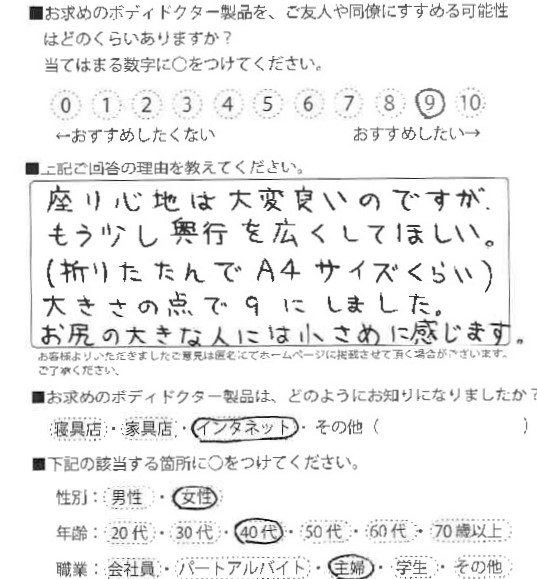 ■お求めのボディドクター製品を、ご友人や同僚にすすめる可能性
はどのくらいありますか？
当てはまる数字に○をつけてください。
0 1 2 3 4 5 6 7 8 9 10
←おすすめしたくない おすすめしたい→
■上記ご回答の理由を教えてください。
座り心地は大変良いのですが、
もう少し奥行を広くしてほしい。
(折りたたんでA4サイズくらい)
大きさの点で9にしました。
お尻の大きな人には小さめに感じます。
お客様よりいただきましたご意見は匿名にてホームページに掲載させて頂く場合がございます。
ご了承ください。
■お求めのボディドクター製品は、どのようにお知りになりましたか？
寝具店・家具店・インターネット・その他（ ）
■下記の該当する箇所に○をつけてください。
性別：男性・女性
年齢：20代・30代・40代・50代・60代・70歳以上
職業：会社員・パートアルバイト・主婦・学生・その他